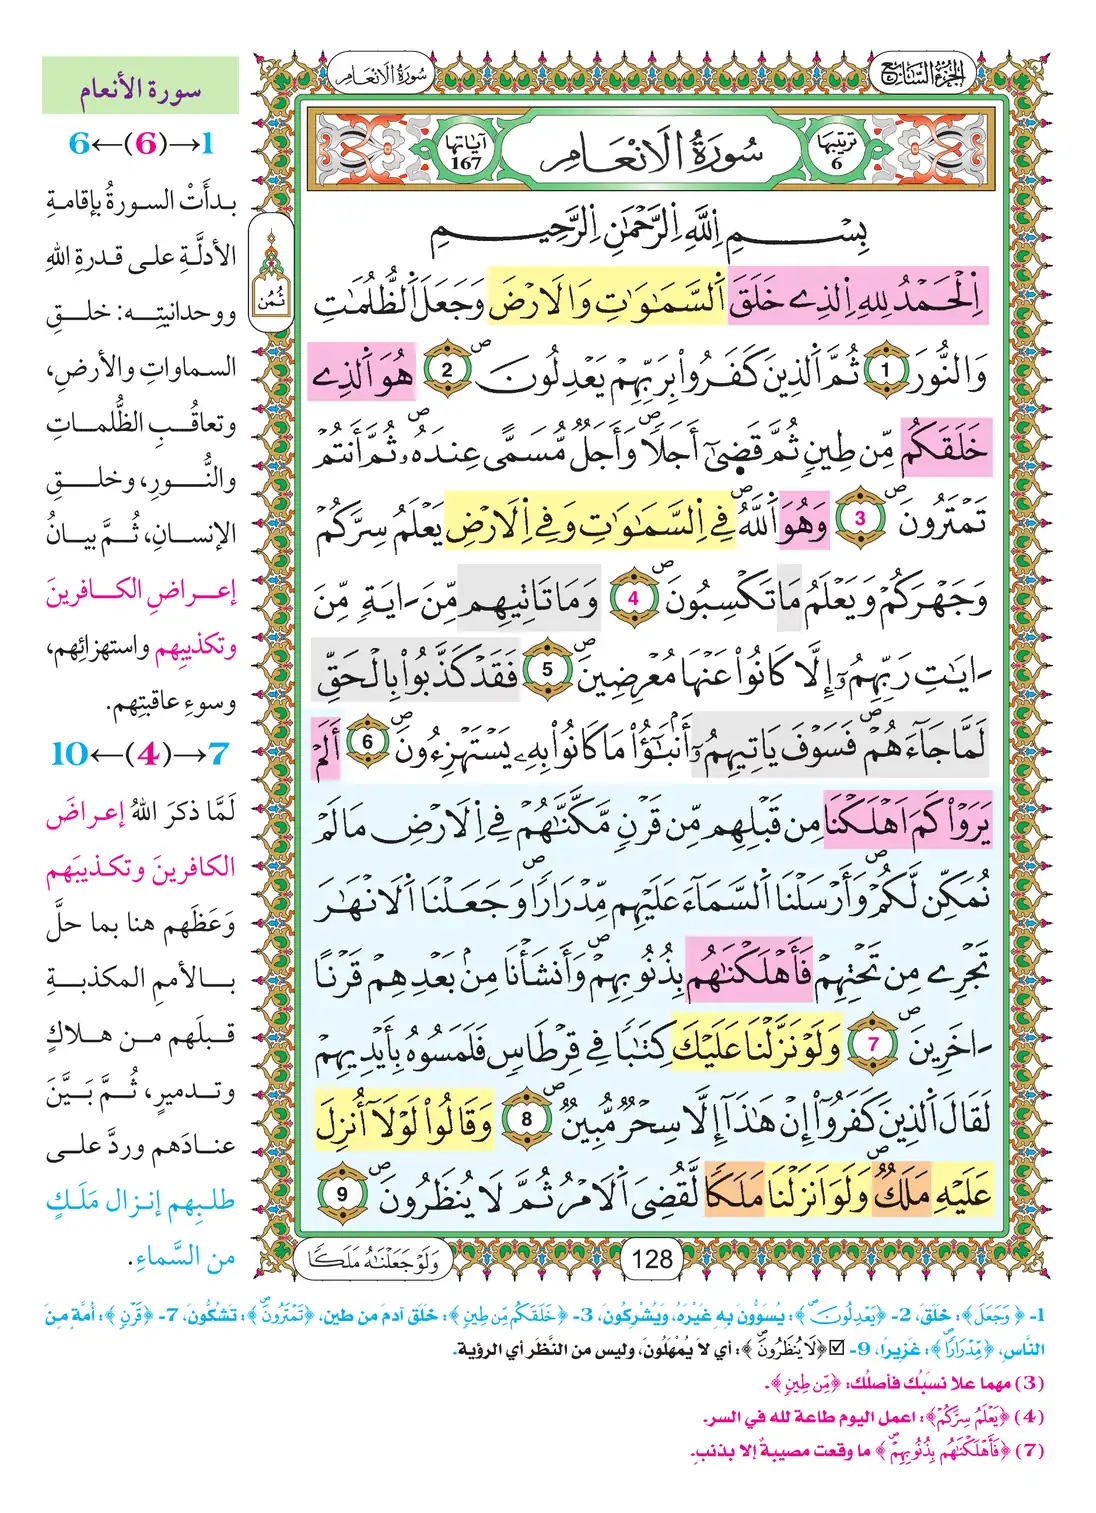 الجزء السابع
سورة الانعام
ترتيبها
6
سُورَةُ الَانْعَامِ
آياتها
167
بِسْمِ اِللَّهِ اِلرَّحْمَٰنِ اِلرَّحِيمِ
ثمن
اِلْحَمْدُ لِلهِ اِلذِے خَلَقَ اَلسَّمَٰوَٰتِ وَالَارْضَ وَجَعَلَ اَلظُّلُمَٰتِ
وَالنُّورَ 1 ثُمَّ اَلذِينَ كَفَرُواْ بِرَبِّهِمْ يَعْدِلُونَۖ 2 هُوَ اَلذِے
خَلَقَكُم مِّن طِينٍ ثُمَّ قَضَىٰٓ أَجَلاٗۖ وَأَجَلٞ مُّسَمًّى عِندَهُۥۖ ثُمَّ أَنتُمْ
تَمْتَرُونَۖ 3 وَهُوَ اَللَّهُۖ فِے اِلسَّمَٰوَٰتِ وَفِے اِلَارْضِ يَعْلَمُ سِرَّكُمْ
وَجَهْرَكُمْ وَيَعْلَمُ مَا تَكْسِبُونَۖ 4 وَمَا تَاتِيهِم مِّنَ ـايَةٖ مِّنَ
ـايَٰتِ رَبِّهِمُۥٓ إِلَّا كَانُواْ عَنْهَا مُعْرِضِينَۖ 5 فَقَدْ كَذَّبُواْ بِالْحَقِّ
لَمَّا جَآءَهُمْۖ فَسَوْفَ يَاتِيهِمُۥٓ أَنۢبَٰٓؤُاْ مَا كَانُواْ بِهِۦ يَسْتَهْزِءُونَۖ 6 أَلَمْ
يَرَوْاْ كَمَ اَهْلَكْنَا مِن قَبْلِهِم مِّن قَرْنٖ مَّكَّنَّٰهُمْ فِے اِلَارْضِ مَا لَمْ
نُمَكِّن لَّكُمْۖ وَأَرْسَلْنَا اَلسَّمَآءَ عَلَيْهِم مِّدْرَاراٗۖ وَجَعَلْنَا اَلَانْهَٰرَ
تَجْرِے مِن تَحْتِهِمْ فَأَهْلَكْنَٰهُم بِذُنُوبِهِمْۖ وَأَنشَأْنَا مِنۢ بَعْدِهِمْ قَرْناً
ـاخَرِينَۖ 7 وَلَوْ نَزَّلْنَا عَلَيْكَ كِتَٰباٗ فِے قِرْطَاسٖ فَلَمَسُوهُ بِأَيْدِيهِمْ
لَقَالَ اَلذِينَ كَفَرُوٓاْ إِنْ هَٰذَآ إِلَّا سِحْرٞ مُّبِينٞۖ 8 وَقَالُواْ لَوْلَآ أُنزِلَ
عَلَيْهِ مَلَكٞۖ وَلَوَ اَنزَلْنَا مَلَكاٗ لَّقُضِيَ اَلَامْرُ ثُمَّ لَا يُنظَرُونَۖ 9
128
وَلَوْ جَعَلْنَٰهُ مَلَكاٗ
سورة الأنعام
1→(6)←6
بدأَتْ السورةُ بإقامةِ
الأدلَّةِ على قدرةِ اللهِ
ووحدانيتِه: خلقِ
السماواتِ والأرضِ،
وتعاقُبِ الظُّلماتِ
والنُّورِ، وخلقِ
الإنسانِ، ثُمَّ بيانُ
إعراضِ الكافرينَ
وتكذيبِهم واستهزائِهم،
وسوءِ عاقبتِهم.
7→(4)←10
لَمَّا ذكرَ اللهُ إعراضَ
الكافرينَ وتكذيبَهم
وَعَظَهم هنا بما حلَّ
بالأممِ المكذبةِ
قبلَهم من هلاكٍ
وتدميرٍ، ثُمَّ بَيَّنَ
عنادَهم وردَّ على
طلبِهم إنزال مَلَكٍ
من السَّماءِ.
1- ﴿وَجَعَلَ﴾: خلَقَ، 2- ﴿يَعْدِلُونَۖ﴾: يُسَوُّونَ بِهِ غَيْرَهُ، ويُشْرِكُونَ، 3- ﴿خَلَقَكُم مِّن طِينٍ﴾: خلَقَ آدمَ من طين، ﴿تَمْتَرُونَۖ﴾: تَشُكُّونَ، 7- ﴿قَرْنٍ﴾: أمَّةٍ مِنَ
النَّاسِ، ﴿مِّدْرَاراٗۖ﴾: غَزِيرًا، 9- ☑ ﴿لَا يُنظَرُونَۖ﴾: أي لا يُمْهَلُونَ، وليس من النَّظَر أي الرؤية.
(3) مهما علا نسَبُك فأصلُك: ﴿مِّن طِينٍ﴾.
(4) ﴿يَعْلَمُ سِرَّكُمْ﴾: اعمل اليوم طاعة لله في السر.
(7) ﴿فَأَهْلَكْنَٰهُم بِذُنُوبِهِمْۖ﴾ ما وقعت مصيبةٌ إلا بذنبٍ.